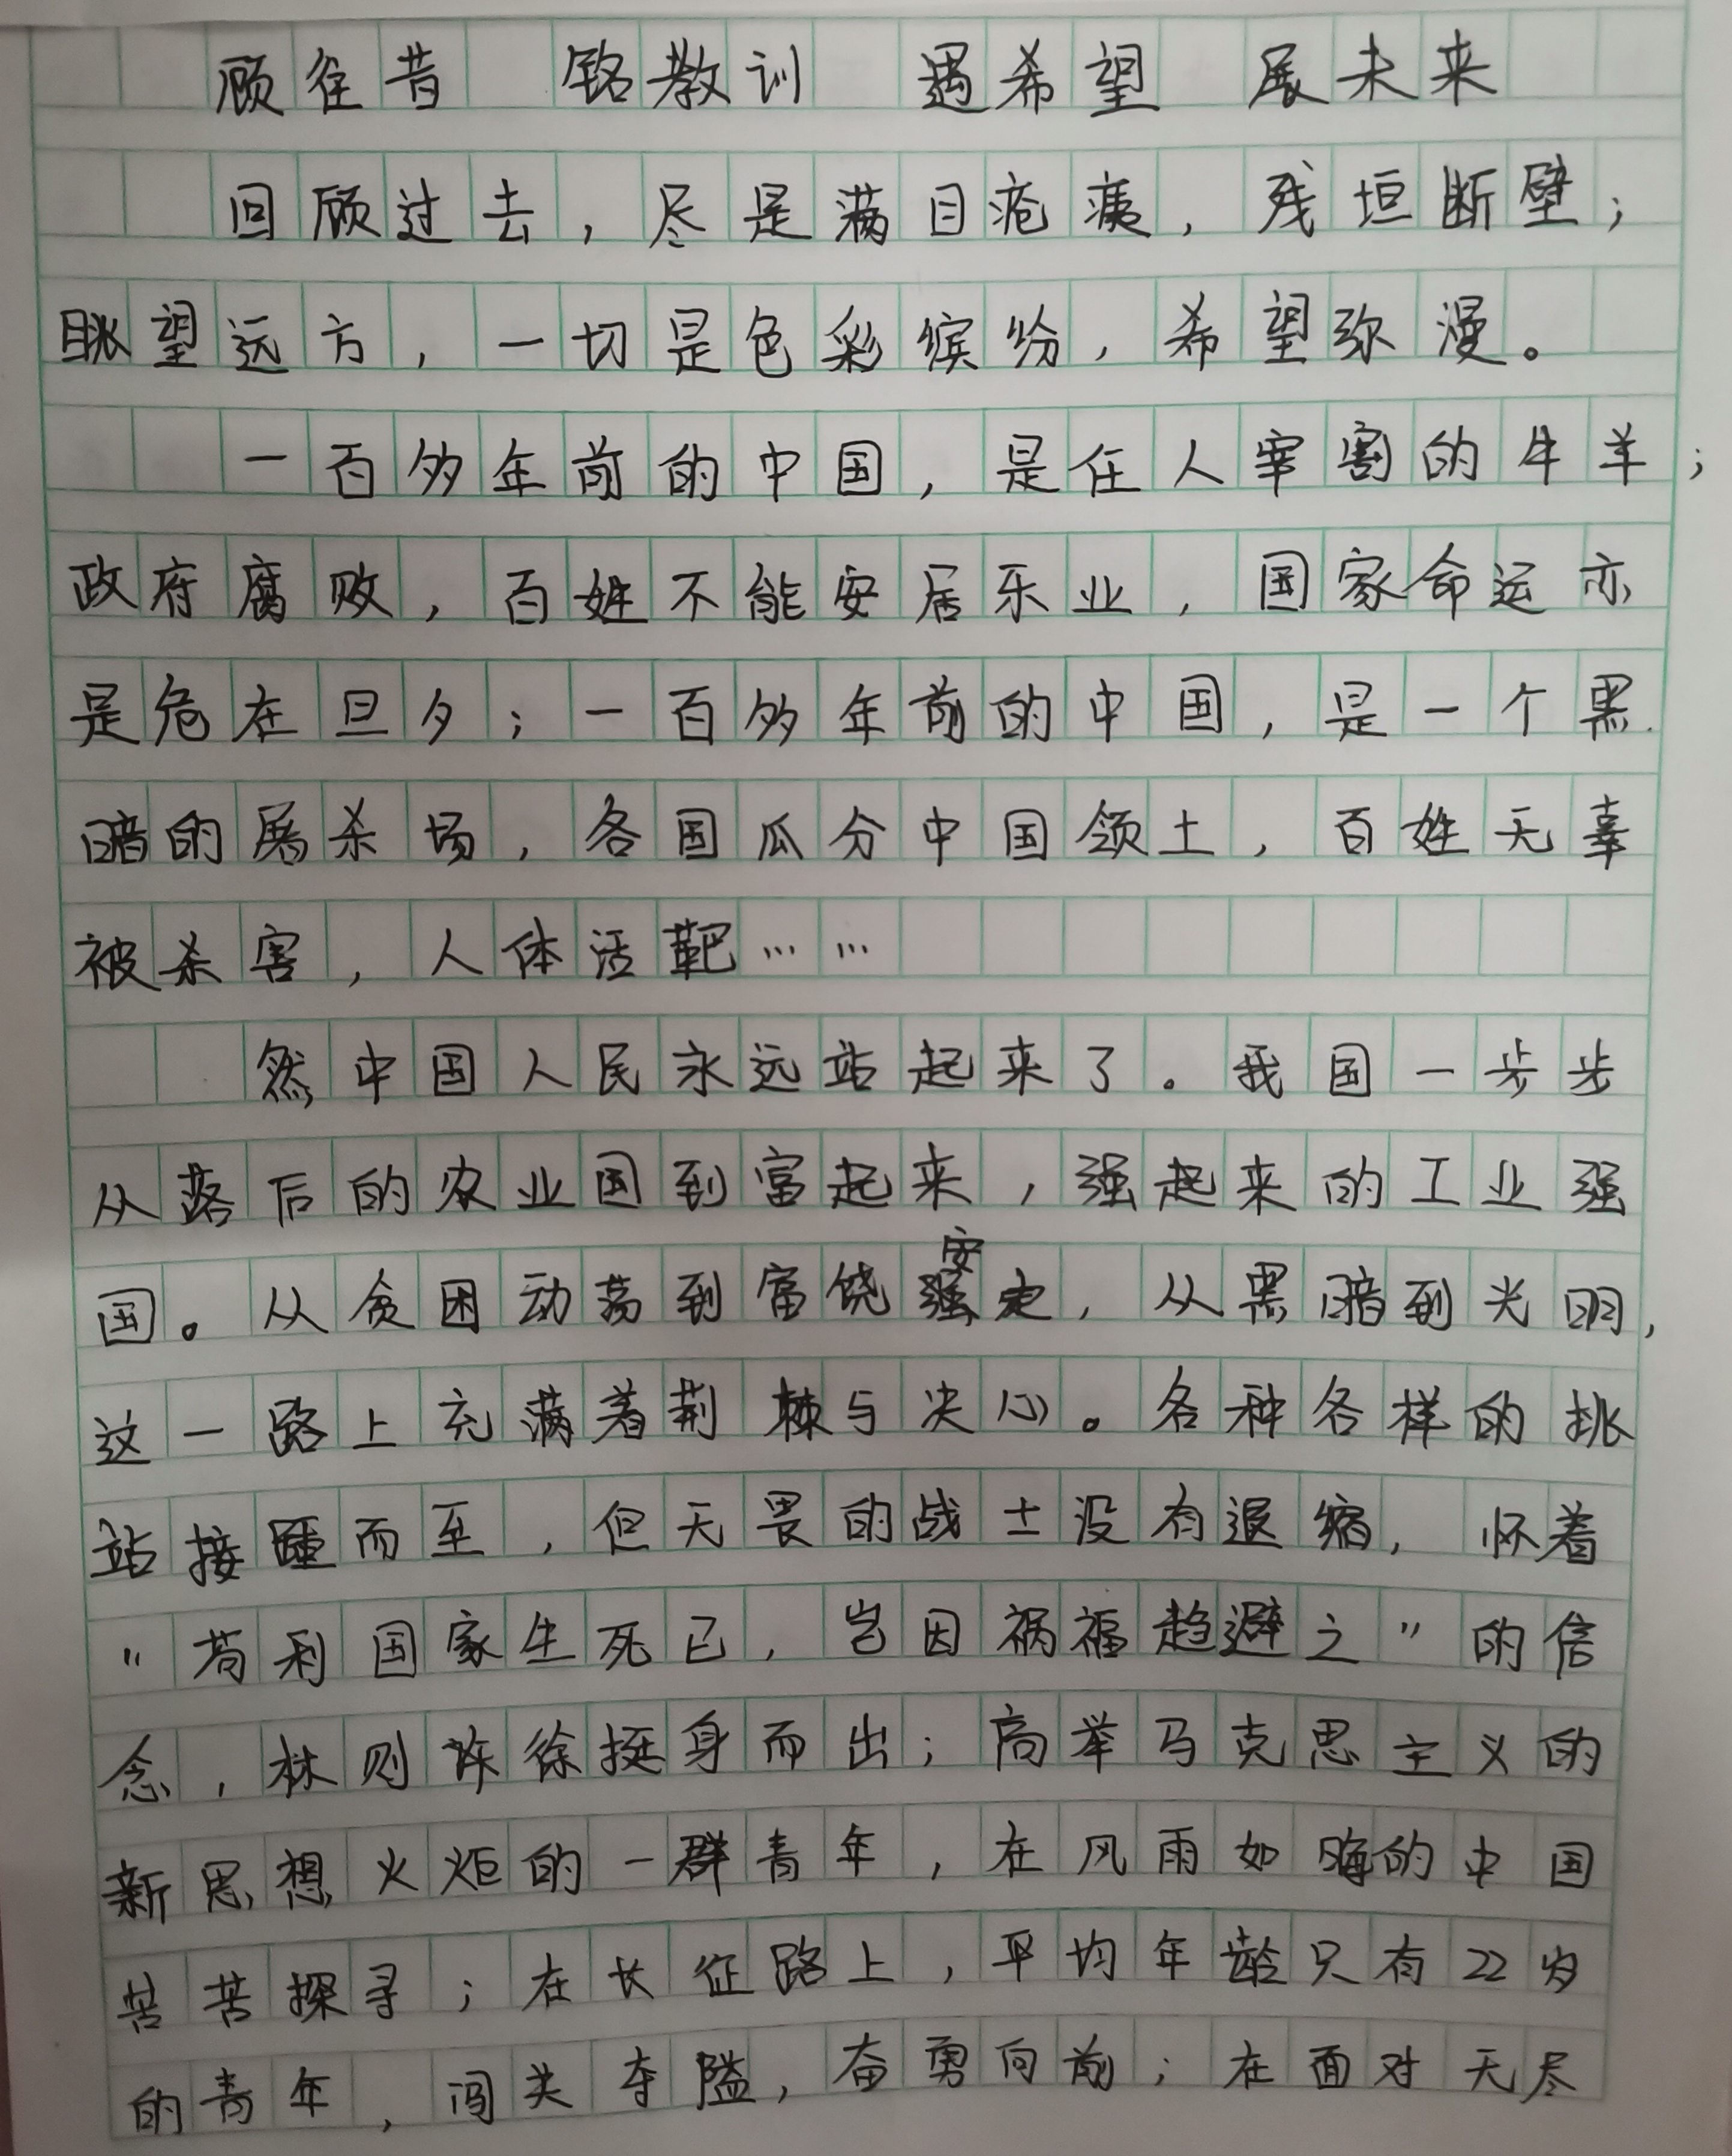 顾往昔 铭教训 遇希望 展未来
回顾过去，尽是满目疮痍，残垣断壁；
眺望远方，一切是色彩缤纷，希望弥漫。
一百多年前的中国，是任人宰割的牛羊；
政府腐败，百姓不能安居乐业，国家命运亦
是危在旦夕；一百多年前的中国，是一个黑
暗的屠杀场，各国瓜分中国领土，百姓无辜
被杀害，人体活靶……
然中国人民永远站起来了。我国一步步
从落后的农业国到富起来，强起来的工业强
国。从贫困动荡到富饶安定，从黑暗到光明，
这一路上充满着荆棘与决心。各种各样的挑
站接踵而至，但无畏的战士没有退缩，怀着
“苟利国家生死已，岂因祸福趋避之”的信
念，林则徐挺身而出；高举马克思主义的
新思想火炬的一群青年，在风雨如晦的中国
苦苦探寻；在长征路上，平均年龄只有22岁
的青年，闯关夺隘，奋勇向前；在面对无尽